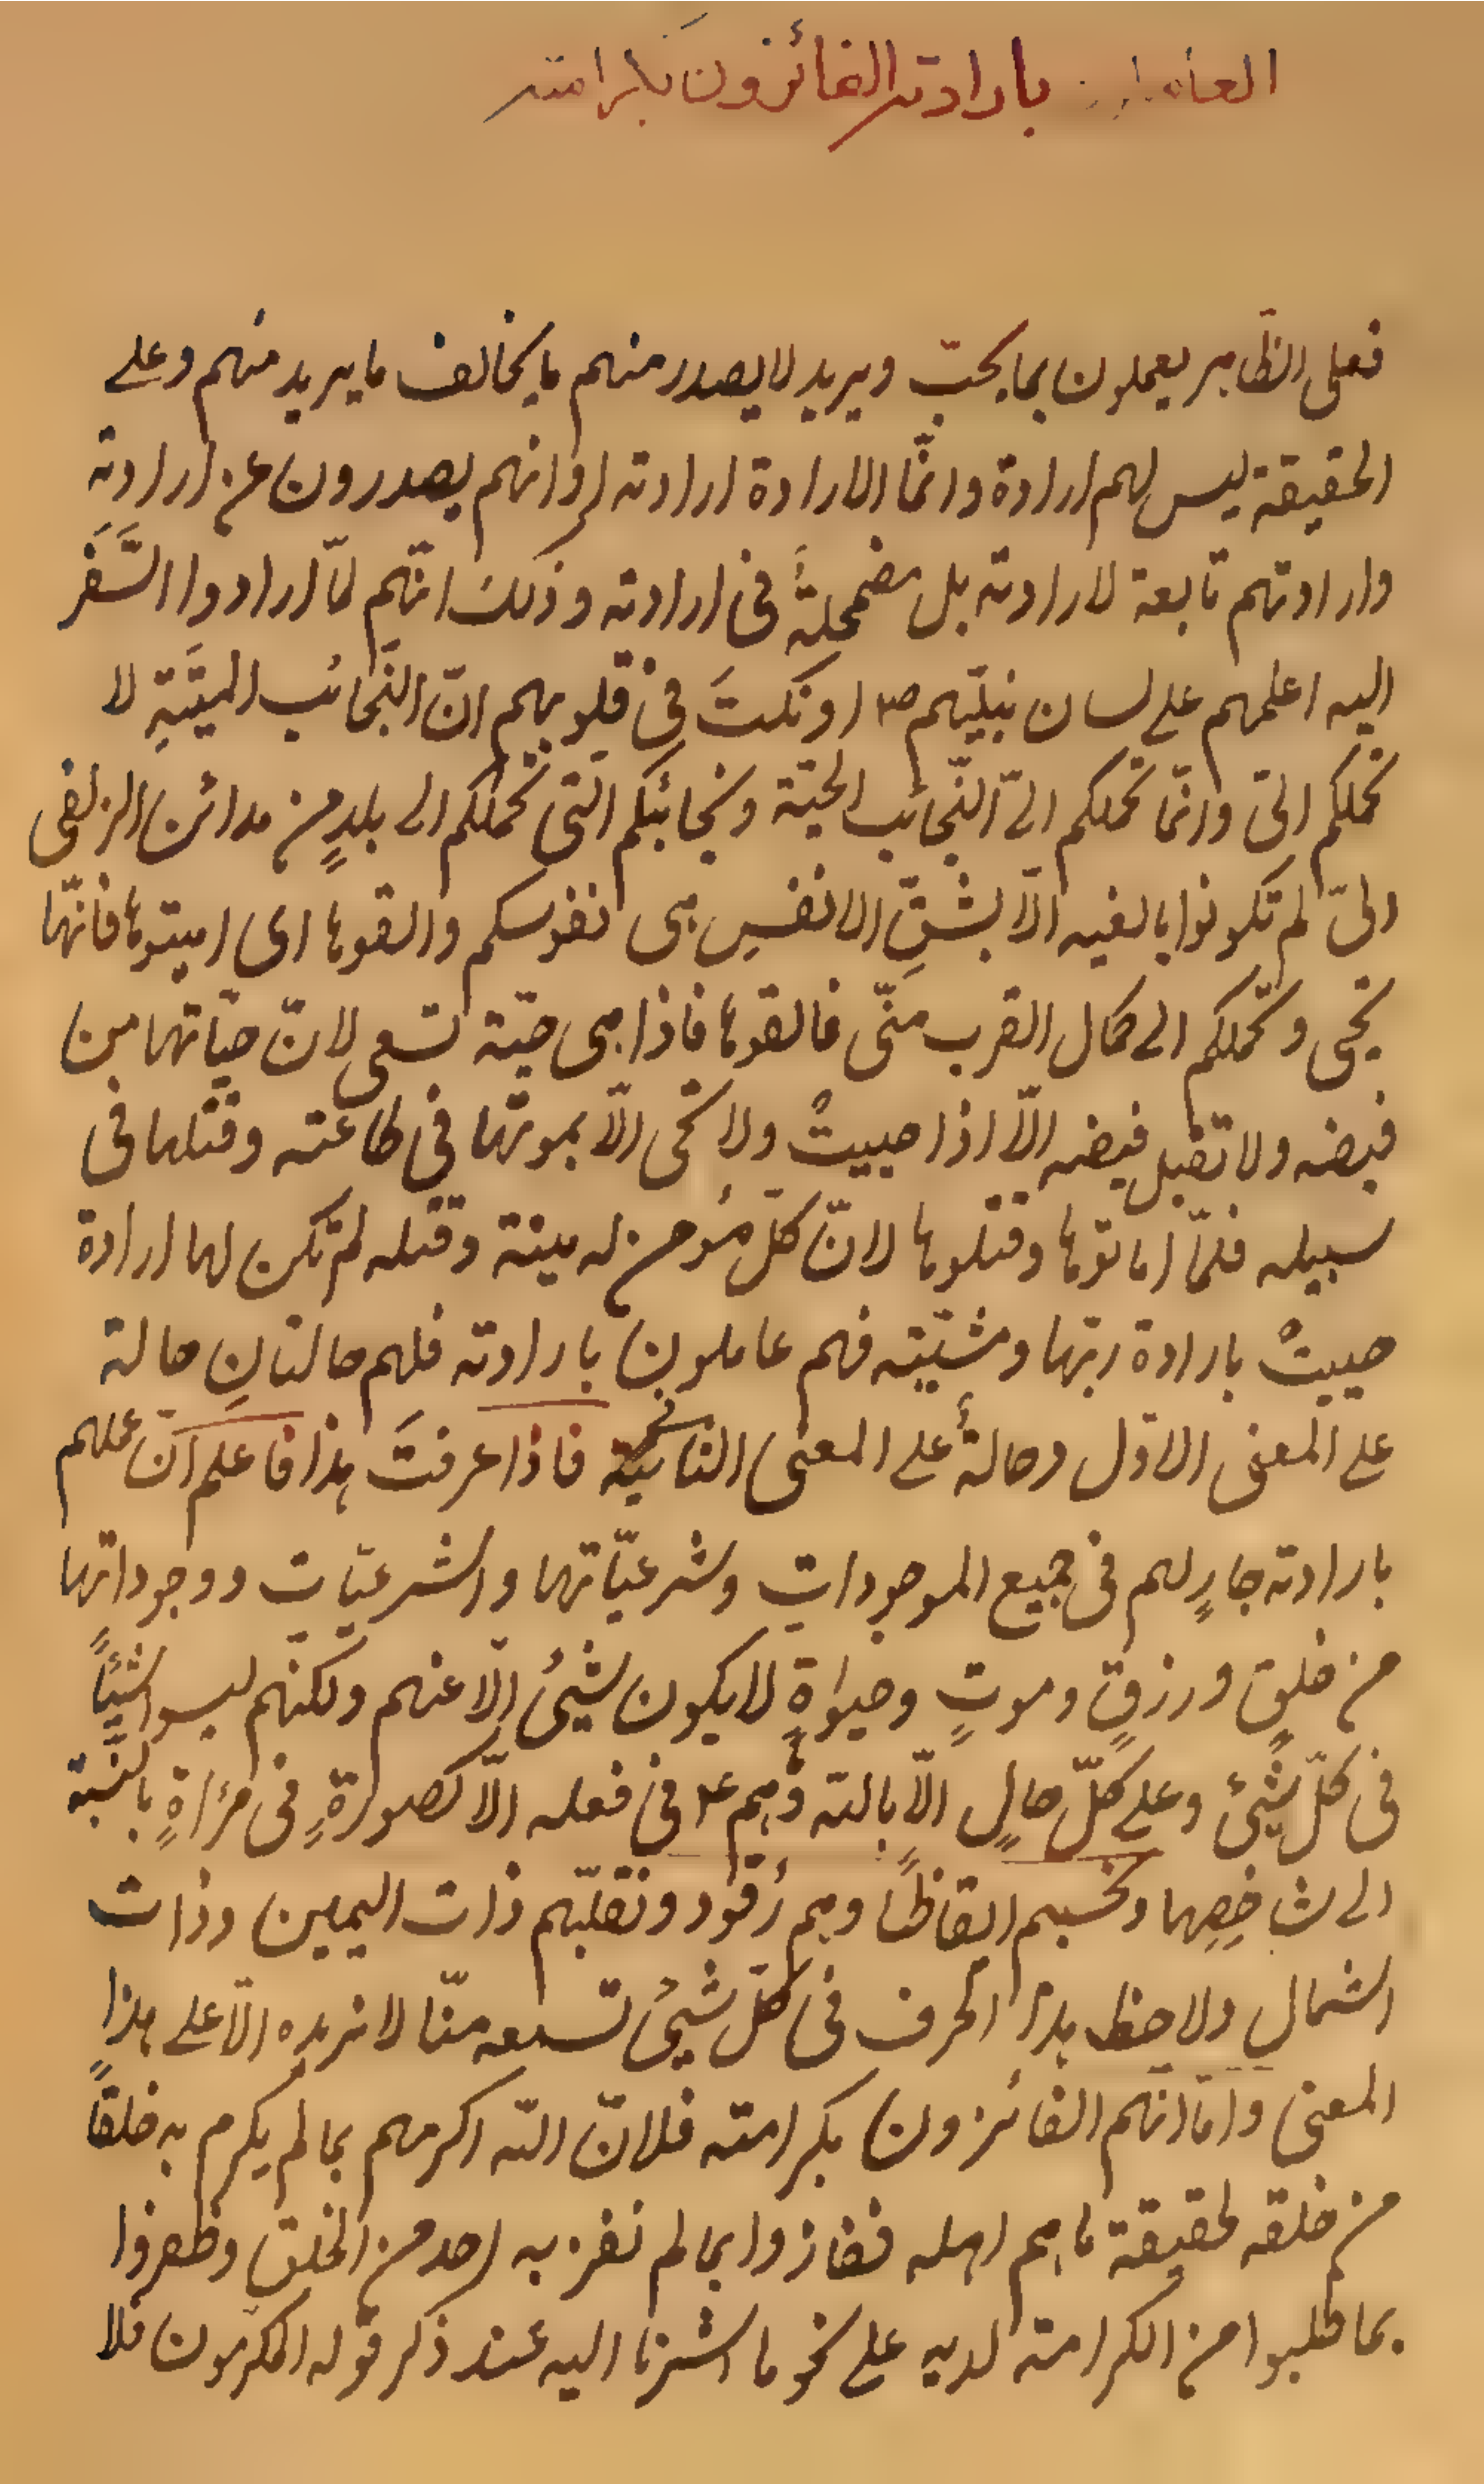 العاملون بارادته الفائزون بكرامته
فعلى الظاهر يعملون بما يحبّ ويريد لا يصدر منهم ما يخالف ما يريد منهم وعلى
الحقيقة ليس لهم ارادة وانمّا الارادة ارادته او انهم يصدرون عن ارادته
وارادتهم تابعة لارادته بل مضمحلةٌ فى ارادته وذلك انّهم لمّا ارادوا السَّفَر
اليه اعلمهم على لسان نبيّهم ص۴ او نكتَ فى قلوبهم انّ النّجائب الميّتةِ لا
تحملكم الىّ وانمّا تحملكم الىّ النّجائب الحيّة ونجائبكم التى تحملكم الى بلدٍ من مدائن الزلفى
الىّ لم تكونوا بالغيه الّا بشقّ الانفس هى انفوسكم والقوها اى اميتوها فانّها
تحيى وتحملكم الى كمال القرب منّى فالقوها فاذا هى حيّة تسعى لانّ حيٰاتها من
فيضه ولا تقبل فيضه الّا اذا حييتْ ولا تحيى الّا بموتها فى طاعته وقتلها فى
سبيله فلمّا اماتوها وقتلوها لانّ كلّ مؤمن له ميتة وقتله لم تكن لها ارادة
حييتْ بارادة ربّها ومشيّته فهم عاملون بارادته فلهم حالتانِ حالة
على المعنى الاوّل وحالةٌ على المعنى الثانى فاذا عرفتَ هذا فاعلم انّ عملهم
بارادته جارٍ لهم فى جميع الموجودات وشرعيّاتها والشرعيّات ووجوداتها
من خلقٍ ورزقٍ وموتٍ وحيواةٍ لا يكون شيئ الّا عنهم ولكنّهم ليسوا شيئاً
فى كلّ شيئ وعلى كلّ حالٍ الّا بالله وهم ع۴ فى فعله الّا كصورةٍ فى مرٰاةٍ بالنّسبة
الى شاخِصِها وتحسبهم ايقاظًا وهم رُقود ونقلّبهم ذات اليمين وذات
الشمال ولاحظ هذا الحرف فى كلّ شيئ تسمعه منّا لا نريده الّا على هذا
المعنى وامّا انّهم الفائزون بكرامته فلانّ اللّه اكرمهم بما لم يكرم به خلقاً
من خلقه لحقيقة ما هم اهله ففازوا بما لم نفز به احد من الخلق وظفروا
بما طلبوا من الكرامة لديه على نحو ما اشرنا اليه عند ذكر قوله المكرّمون فلا